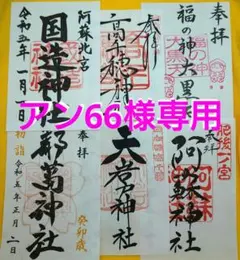 阿蘇北宮
国造神社
令和五年一月一日
奉拝
高千穂神社
奉拝
福の神大黒
アン66様専用
奉拝
初詣
都萬神社
令和五年正月二日
癸卯歳
天岩戸神社
奉拝
肥後一ノ宮
阿蘇神社